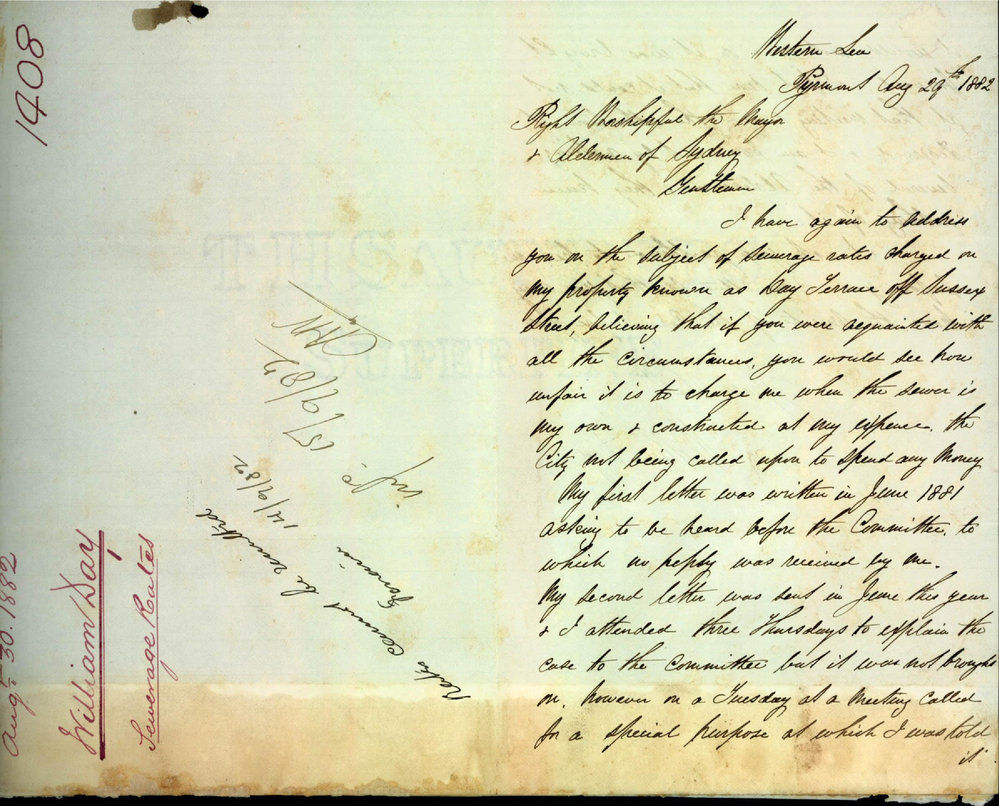 1408
Augt 30. 1882
William Day
Sewerage Rates
Rates cannot be remitted
14/9/82
15/9/82
Western Lea
Pyrmont Aug 29th 1882
Right Worshipful the Mayor
& Aldermen of Sydney
Gentlemen
I have again to address
you on the subject of sewerage rates charged on
my property known as Day Terrace off Sussex
Street, believing that if you were aquainted with
all the circumstances, you would see how
unfair it is to charge me when the sewer is
my own & constructed at my expence. the
City not being called upon to spend any Money
My first letter was written in June 1881
asking to be heard before the Committee, to
which no reply was received by me.
My second letter was sent in June this year
& I attended three Thursdays to explain the
case to the Committee but it was not brought
on, however on a Tuesday at a Meeting called
for a special purpose at which I was told
it
SUPERFINE